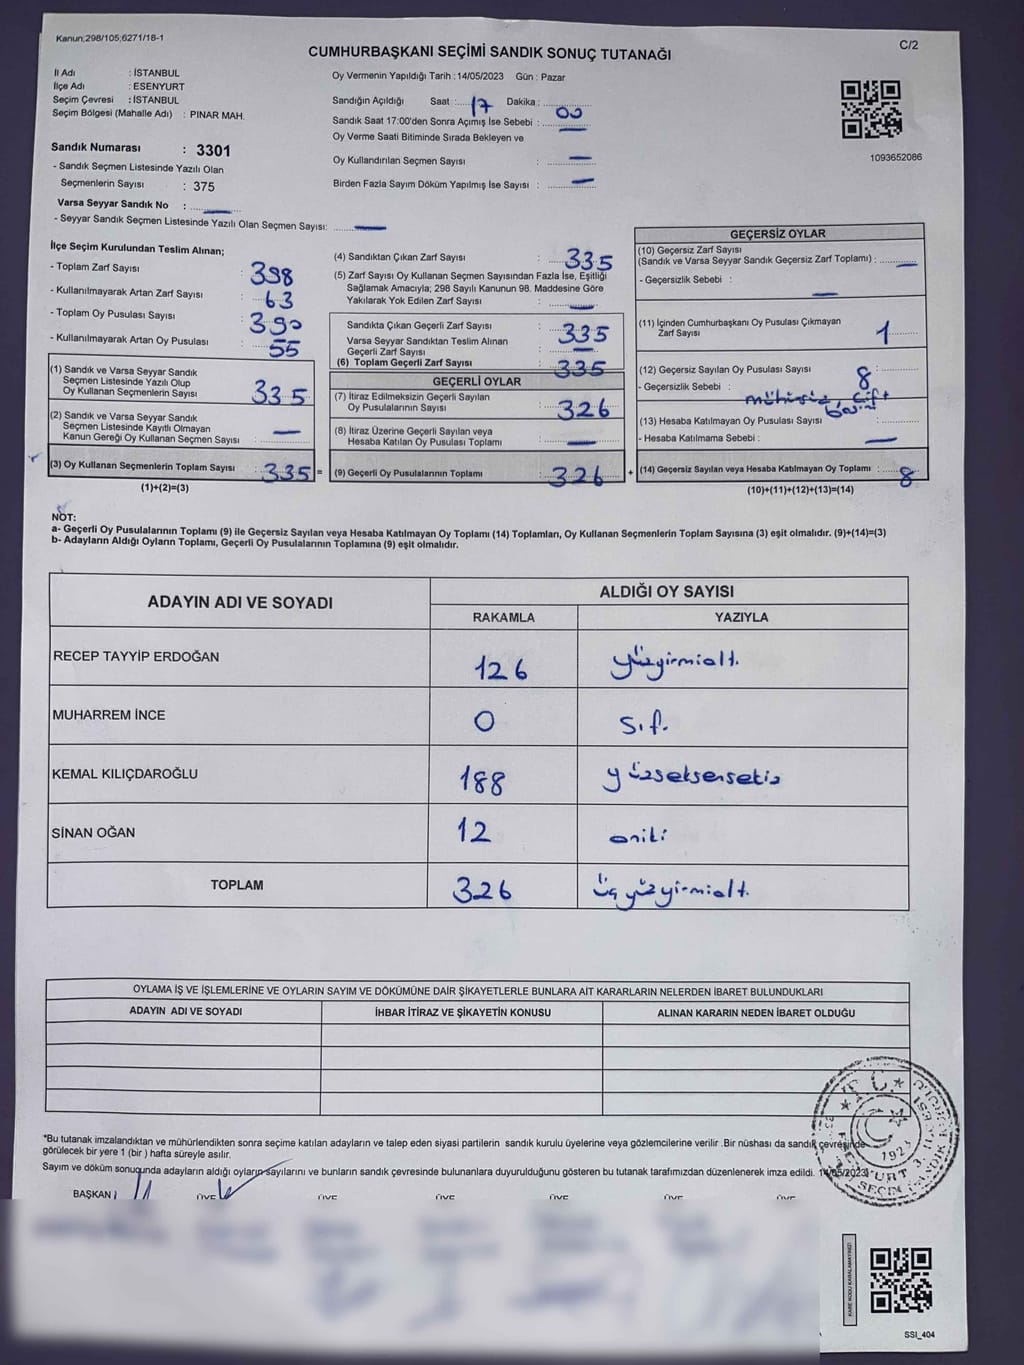 Kanun;298/105;6271/18-1
C/2
CUMHURBAŞKANI SEÇİMİ SANDIK SONUÇ TUTANAĞI
İl Adı : İSTANBUL
İlçe Adı : ESENYURT
Seçim Çevresi : İSTANBUL
Seçim Bölgesi (Mahalle Adı) : PINAR MAH.
Sandık Numarası : 3301
- Sandık Seçmen Listesinde Yazılı Olan
Seçmenlerin Sayısı : 375
Varsa Seyyar Sandık No : —
- Seyyar Sandık Seçmen Listesinde Yazılı Olan Seçmen Sayısı: —
Oy Vermenin Yapıldığı Tarih : 14/05/2023 Gün : Pazar
Sandığın Açıldığı Saat : 17 Dakika : 00
Sandık Saat 17:00'den Sonra Açımış İse Sebebi : —
Oy Verme Saati Bitiminde Sırada Bekleyen ve
Oy Kullandırılan Seçmen Sayısı : —
Birden Fazla Sayım Döküm Yapılmış İse Sayısı : —
1093652086
İlçe Seçim Kurulundan Teslim Alınan;
- Toplam Zarf Sayısı : 398
- Kullanılmayarak Artan Zarf Sayısı : 63
- Toplam Oy Pusulası Sayısı : 390
- Kullanılmayarak Artan Oy Pusulası : 55
(1) Sandık ve Varsa Seyyar Sandık
Seçmen Listesinde Yazılı Olup
Oy Kullanan Seçmenlerin Sayısı : 335
(2) Sandık ve Varsa Seyyar Sandık
Seçmen Listesinde Kayıtlı Olmayan
Kanun Gereği Oy Kullanan Seçmen Sayısı : —
(3) Oy Kullanan Seçmenlerin Toplam Sayısı : 335 =
(1)+(2)=(3)
(4) Sandıktan Çıkan Zarf Sayısı : 335
(5) Zarf Sayısı Oy Kullanan Seçmen Sayısından Fazla İse, Eşitliği
Sağlamak Amacıyla; 298 Sayılı Kanunun 98. Maddesine Göre
Yakılarak Yok Edilen Zarf Sayısı : —
Sandıkta Çıkan Geçerli Zarf Sayısı : 335
Varsa Seyyar Sandıktan Teslim Alınan
Geçerli Zarf Sayısı : —
(6) Toplam Geçerli Zarf Sayısı : 335
GEÇERLİ OYLAR
(7) İtiraz Edilmeksizin Geçerli Sayılan
Oy Pusulalarının Sayısı : 326
(8) İtiraz Üzerine Geçerli Sayılan veya
Hesaba Katılan Oy Pusulası Toplamı : —
(9) Geçerli Oy Pusulalarının Toplamı : 326 +
GEÇERSİZ OYLAR
(10) Geçersiz Zarf Sayısı
(Sandık ve Varsa Seyyar Sandık Geçersiz Zarf Toplamı) : —
- Geçersizlik Sebebi : —
(11) İçinden Cumhurbaşkanı Oy Pusulası Çıkmayan
Zarf Sayısı : 1
(12) Geçersiz Sayılan Oy Pusulası Sayısı : 8
- Geçersizlik Sebebi : mühürsüz, çift
(13) Hesaba Katılmayan Oy Pusulası Sayısı :
- Hesaba Katılmama Sebebi : —
(14) Geçersiz Sayılan veya Hesaba Katılmayan Oy Toplamı : 8
(10)+(11)+(12)+(13)=(14)
NOT:
a- Geçerli Oy Pusulalarının Toplamı (9) ile Geçersiz Sayılan veya Hesaba Katılmayan Oy Toplamı (14) Toplamları, Oy Kullanan Seçmenlerin Toplam Sayısına (3) eşit olmalıdır. (9)+(14)=(3)
b- Adayların Aldığı Oyların Toplamı, Geçerli Oy Pusulalarının Toplamına (9) eşit olmalıdır.
ADAYIN ADI VE SOYADI
ALDIĞI OY SAYISI
RAKAMLA YAZIYLA
RECEP TAYYİP ERDOĞAN 126 yüzyirmialtı
MUHARREM İNCE 0 sıfır
KEMAL KILIÇDAROĞLU 188 yüzseksensekiz
SİNAN OĞAN 12 oniki
TOPLAM 326 üçyüzyirmialtı
OYLAMA İŞ VE İŞLEMLERİNE VE OYLARIN SAYIM VE DÖKÜMÜNE DAİR ŞİKAYETLERLE BUNLARA AİT KARARLARIN NELERDEN İBARET BULUNDUKLARI
ADAYIN ADI VE SOYADI İHBAR İTİRAZ VE ŞİKAYETİN KONUSU ALINAN KARARIN NEDEN İBARET OLDUĞU
*Bu tutanak imzalandıktan ve mühürlendikten sonra seçime katılan adayların ve talep eden siyasi partilerin sandık kurulu üyelerine veya gözlemcilerine verilir .Bir nüshası da sandık çevresinde
görülecek bir yere 1 (bir ) hafta süreyle asılır.
Sayım ve döküm sonuçunda adayların aldığı oyların sayılarını ve bunların sandık çevresinde bulunanlara duyurulduğunu gösteren bu tutanak tarafımızdan düzenlenerek imza edildi. 14/05/2023
BAŞKAN ÜYE ÜYE ÜYE ÜYE ÜYE ÜYE
T.C.
1923
KARE KODU KARALAMAYINIZ!
SSİ_404